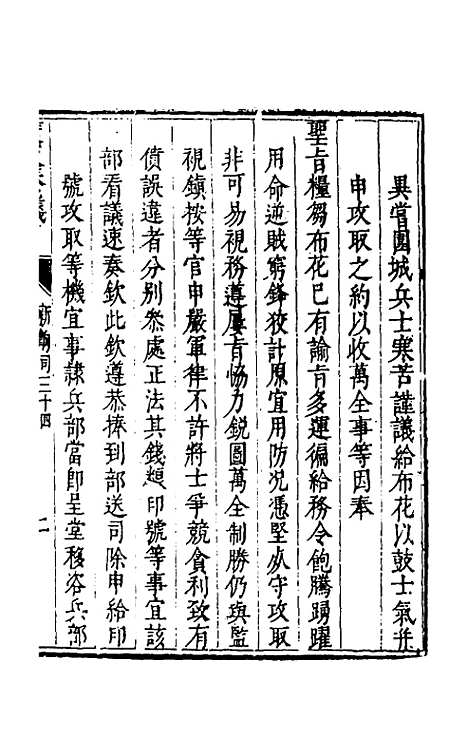 異嘗圍城兵士寒苦謹議給布花以鼓士氣并
申攻取之約以收萬全事等因奉
聖旨糧芻布花已有諭旨多運徧給務令飽騰踴躍
用命逆賊窮鋒狡計原宜用防况憑堅必守攻取
非可易視務遵屢旨恊力銳圖萬全制勝仍與監
視鎮按等官申嚴軍律不許將士爭競貪利致有
僨誤違者分别叅處正法其錢𩔖印號等事宜該
部看議速奏欽此欽遵恭捧到部送司除申給印
號攻取等機宜事隷兵部當即呈堂移咨兵部
新餉司三十四
二